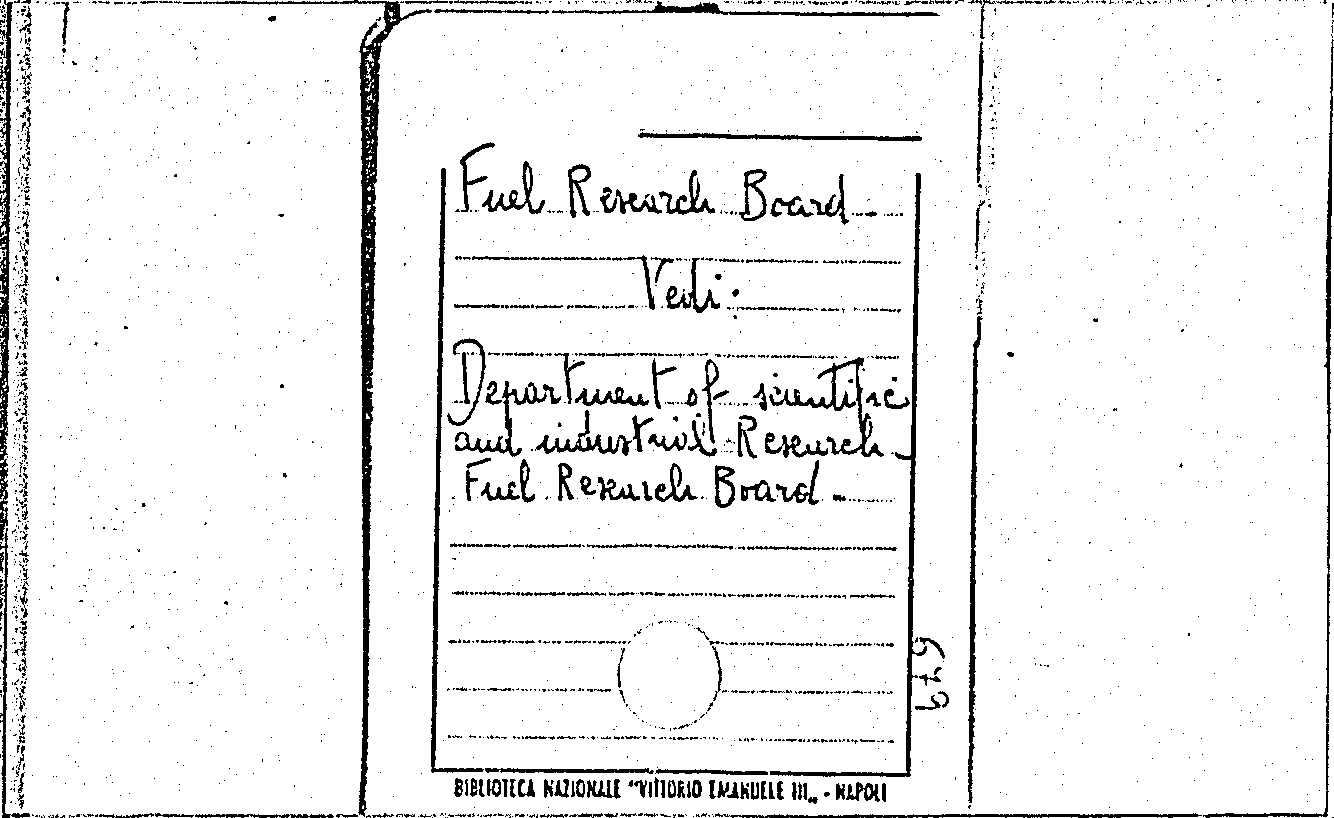 Fuel Research Board -
Vedi:
Department of scientific
and industrial Research -
Fuel Research Board -
679
BIBLIOTECA NAZIONALE "VITTORIO EMANUELE III„ - NAPOLI